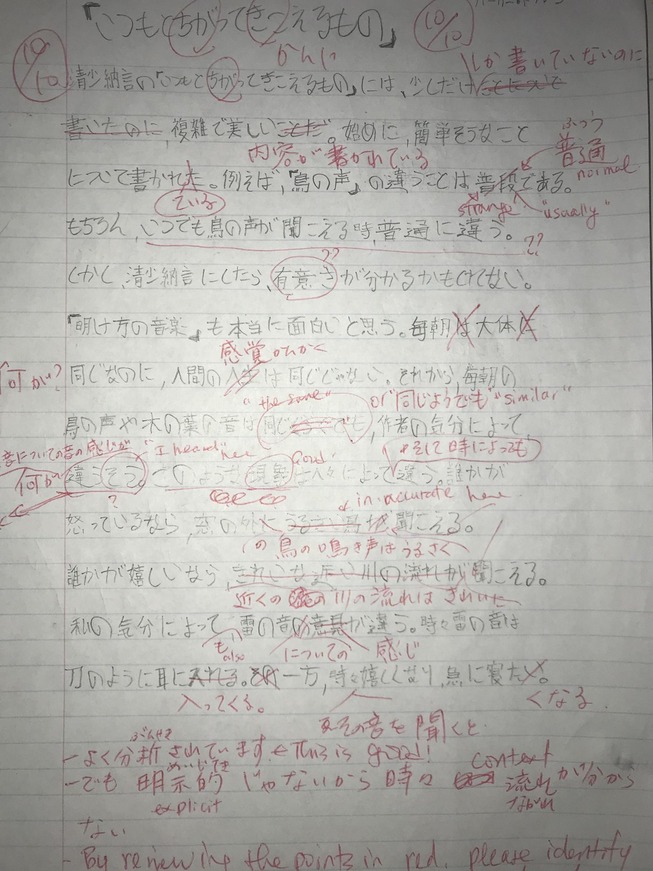 「いつもとちがってきこえるもの」
10/10
10/10
かんい
しか書いていないのに
清少納言の「いつもとちがってきこえるもの」には、少しだけ
書いたのに、複雑で美しいことだ。始めに、簡単そうなこと
内容が書かれている
ふつう
普通
normal
について書かれた。例えば、「鳥の声」の違うことは普段である。
ている
strange
"usually"
もちろん、いつでも鳥の声が聞こえる時、普通に違う。
??
??
しかし、清少納言にしたら、有意さが分かるかもしれない。
「明け方の音楽」も本当に面白いと思う。毎朝は大体に
感覚
何が?
同じなのに、人間の人生は同じじゃない。それから、毎朝の
"the same"
or "同じようでも" "similar"
鳥の声や木の葉の音は同じでも、作者の気分によって、
音についての音の感じが
"I heard" here
Good!
そして時によっても
何が
違うそう。このような現象は人々によって違う。誰かが
?
inaccurate here
怒っているなら、窓の外にうるさい鳥が聞こえる。
の鳥の鳴き声はうるさく
誰かが嬉しいなら、きれいな近い川の流れが聞こえる。
近くの川の流れはきれいに
私の気分によって、雷の音の意見が違う。時々雷の音は
も
also
についての感じ
刀のように耳に入れる。一方、時々嬉しくなり、急に寝たい。
入ってくる。
その音を聞くと
くなる
ぶんせき
-よく分析されています。← This is good!
めいじてき
context
-でも明示的じゃないから時々流れが分から
explicit
ながれ
ない
- By reviewing the points in red, please identify